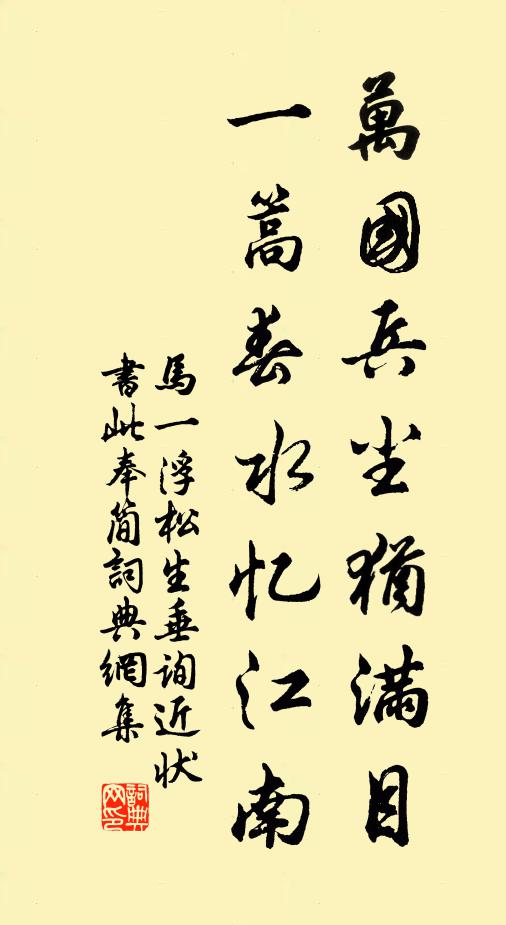 萬國兵尘猶满目
一篙春水忆江南
馬一浮松生垂詢近状
書此奉简詞典網集
詞典网印